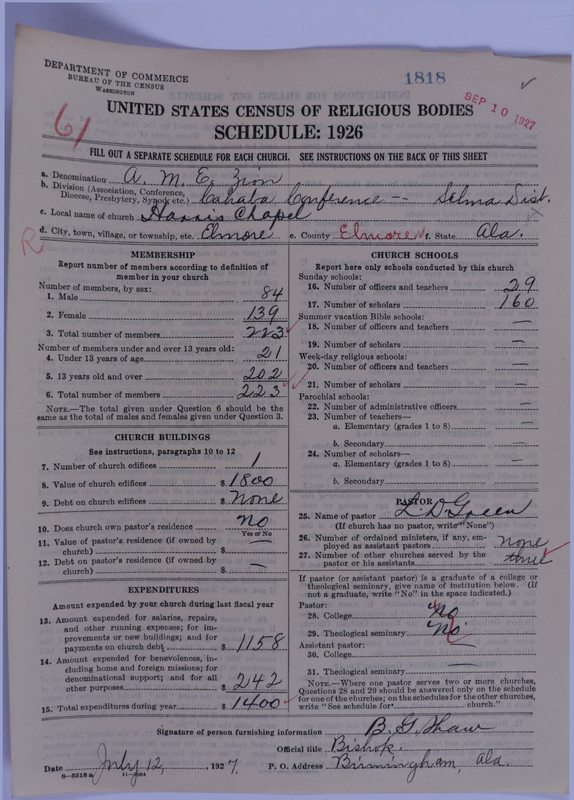 DEPARTMENT OF COMMERCE
BUREAU OF THE CENSUS
WASHINGTON
1818
SEP 10 1927
61
UNITED STATES CENSUS OF RELIGIOUS BODIES
SCHEDULE: 1926
FILL OUT A SEPARATE SCHEDULE FOR EACH CHURCH. SEE INSTRUCTIONS ON THE BACK OF THIS SHEET
a. Denomination A. M. E. Zion
b. Division (Association, Conference, Diocese, Presbytery, Synod, etc.) Cahaba Conference -- Selma Dist.
c. Local name of church Harris Chapel
R
d. City, town, village, or township, etc. Elmore e. County Elmore f. State Ala.
MEMBERSHIP
Report number of members according to definition of
member in your church
Number of members, by sex:
1. Male 84
2. Female 139
3. Total number of members 223
Number of members under and over 13 years old:
4. Under 13 years of age 21
5. 13 years old and over 202
6. Total number of members 223
NOTE.—The total given under Question 6 should be the
same as the total of males and females given under Question 3.
CHURCH BUILDINGS
See instructions, paragraphs 10 to 12
7. Number of church edifices 1
8. Value of church edifices $ 1800
9. Debt on church edifices $ None
10. Does church own pastor's residence? no
Yes or No
11. Value of pastor's residence (if owned by
church) $ —
12. Debt on pastor's residence (if owned by
church) $ —
EXPENDITURES
Amount expended by your church during last fiscal year
13. Amount expended for salaries, repairs,
and other running expenses; for im-
provements or new buildings; and for
payments on church debt $ 1158
14. Amount expended for benevolences, in-
cluding home and foreign missions; for
denominational support; and for all
other purposes $ 242
15. Total expenditures during year $ 1400
CHURCH SCHOOLS
Report here only schools conducted by this church
Sunday schools:
16. Number of officers and teachers 29
17. Number of scholars 160
Summer vacation Bible schools:
18. Number of officers and teachers —
19. Number of scholars —
Week-day religious schools:
20. Number of officers and teachers —
21. Number of scholars —
Parochial schools:
22. Number of administrative officers —
23. Number of teachers—
a. Elementary (grades 1 to 8) —
b. Secondary —
24. Number of scholars—
a. Elementary (grades 1 to 8) —
b. Secondary
PASTOR
25. Name of pastor L. D. Green
(If church has no pastor, write "None")
26. Number of ordained ministers, if any, em-
ployed as assistant pastors none
27. Number of other churches served by the
pastor or his assistants three
If pastor (or assistant pastor) is a graduate of a college or
theological seminary, give name of institution below. (If
not a graduate, write "No" in the space indicated.)
Pastor:
28. College No
29. Theological seminary No
Assistant pastor:
30. College —
31. Theological seminary —
NOTE.—Where one pastor serves two or more churches,
Questions 28 and 29 should be answered only on the schedule
for one of the churches; on the schedules for the other churches,
write "See schedule for church."
Signature of person furnishing information B. G. Shaw
Official title Bishop.
Date July 12, 1927. P. O. Address Birmingham, Ala.